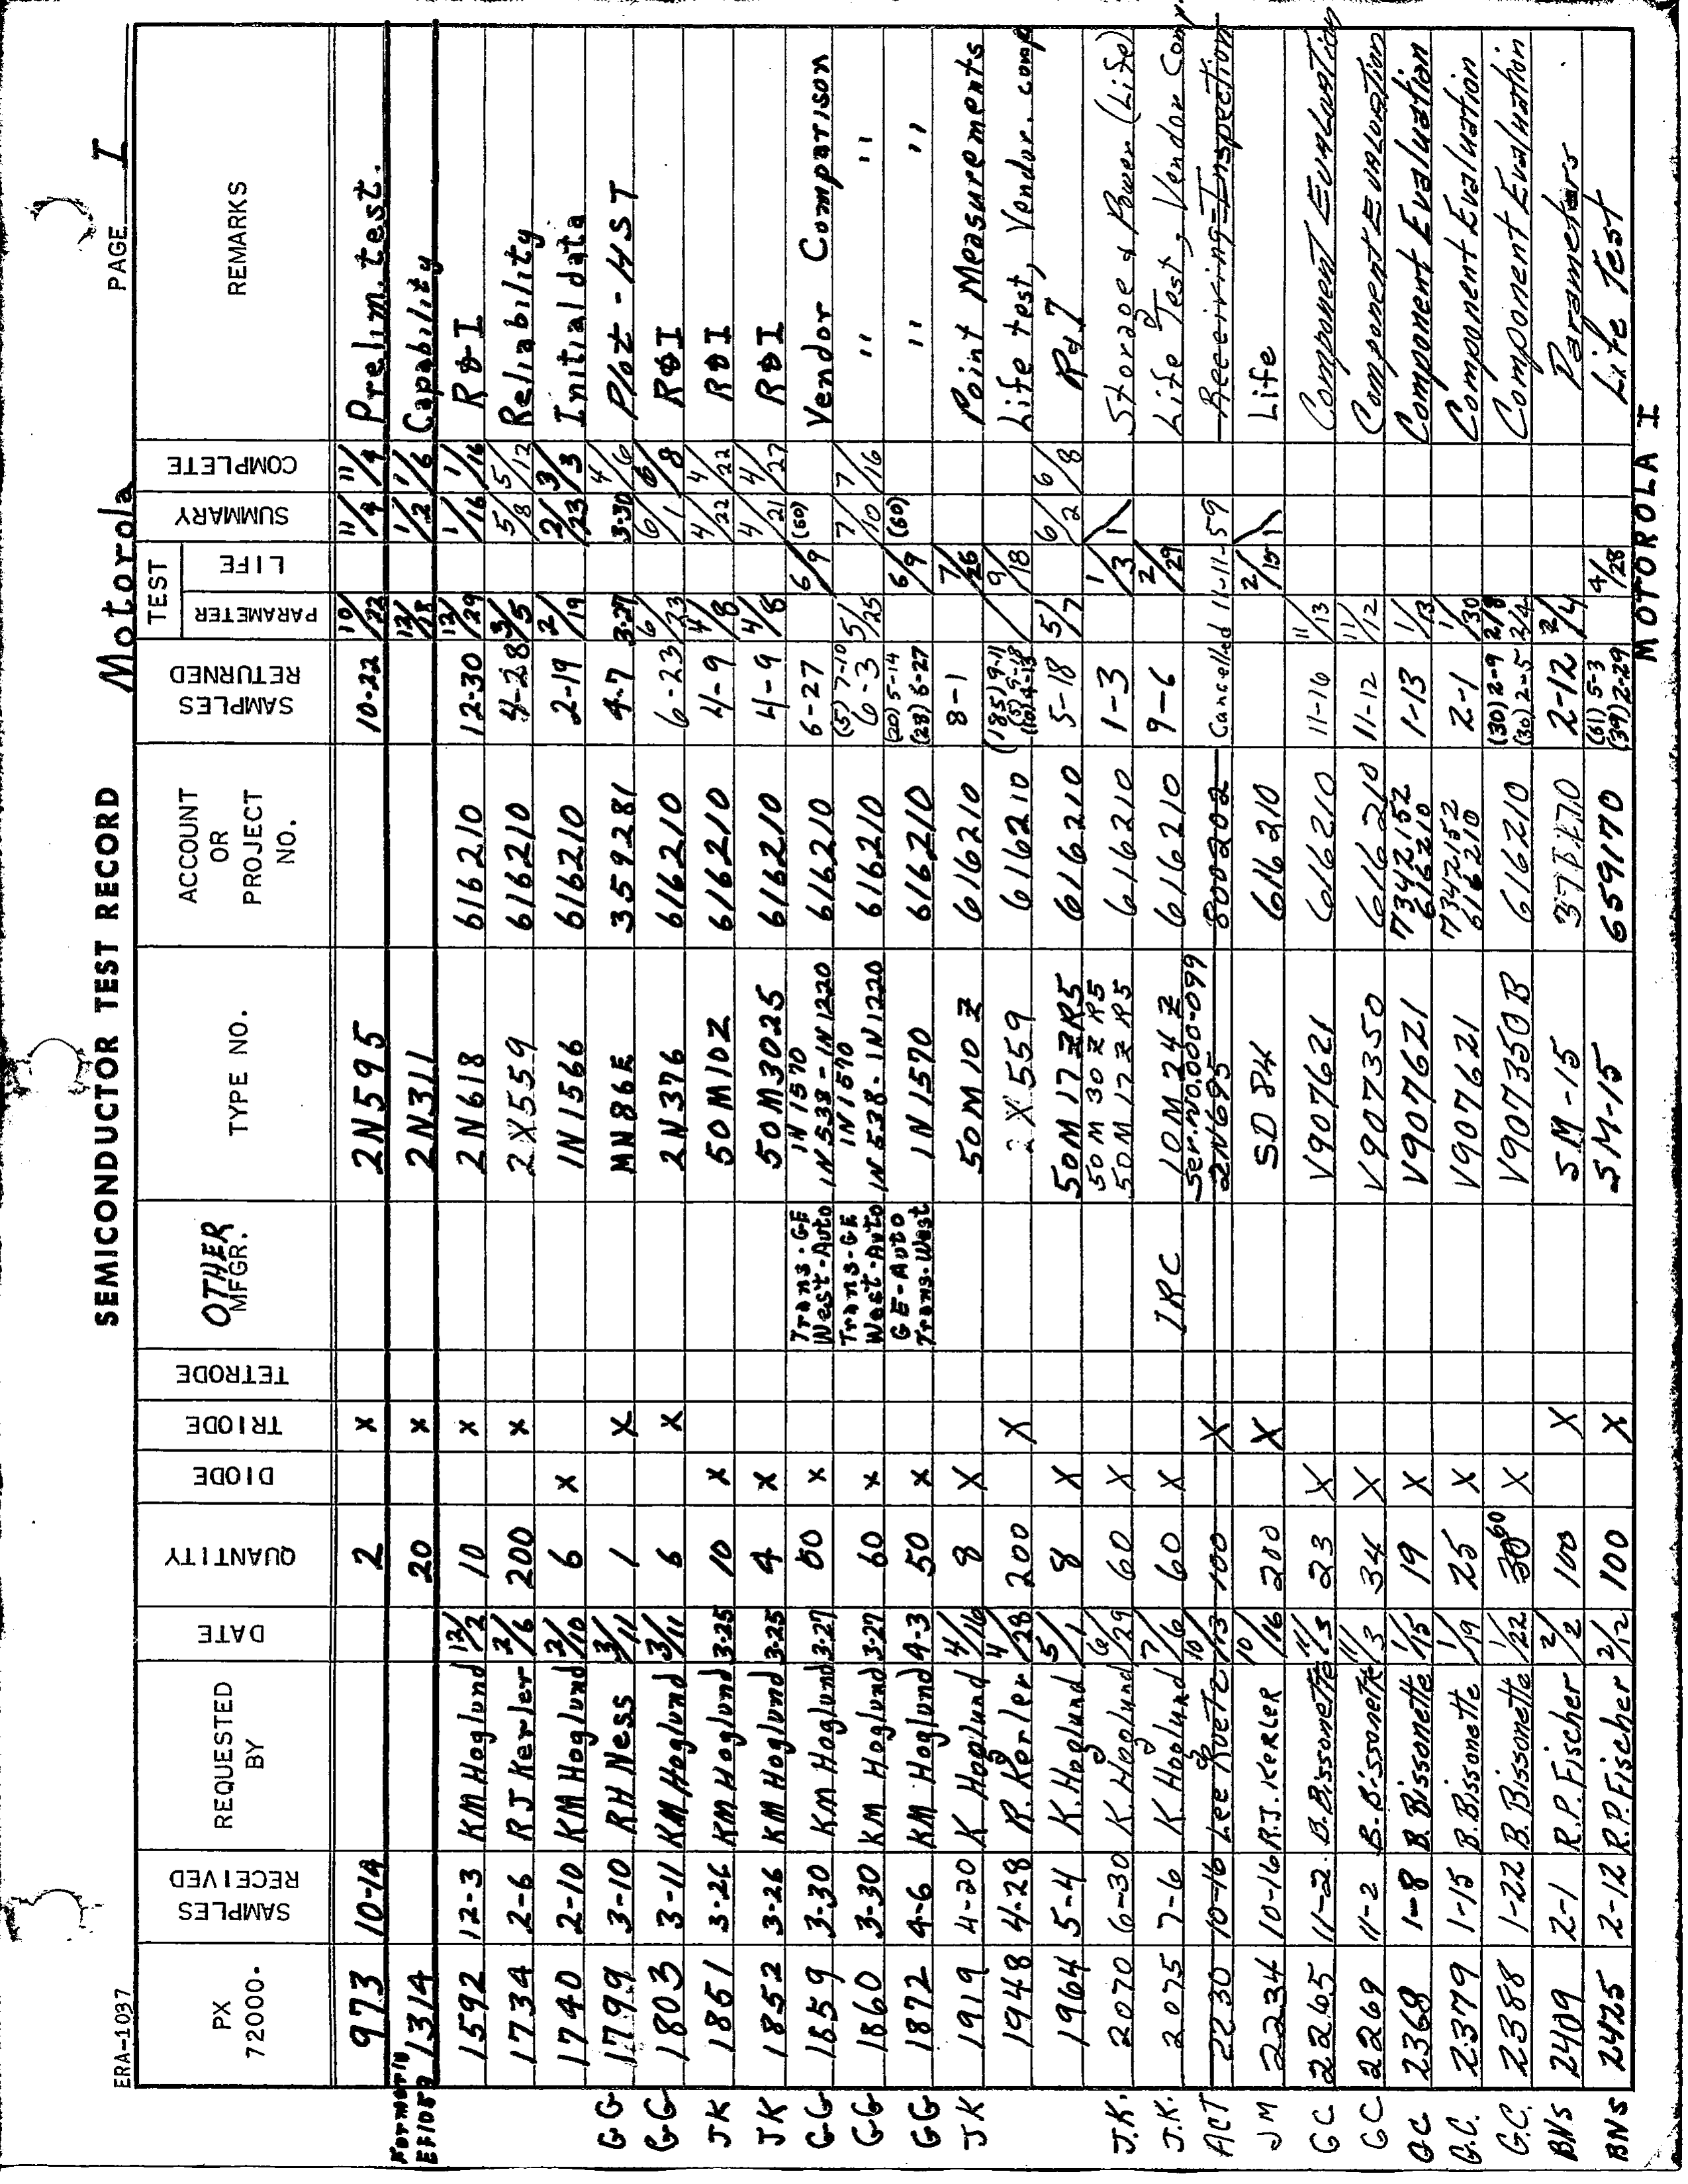 ERA-1037
SEMICONDUCTOR TEST RECORD
Motorola
PAGE I
PX 72000. | SAMPLES RECEIVED | REQUESTED BY | DATE | QUANTITY | DIODE | TRIODE | TETRODE | OTHER MFGR. | TYPE NO. | ACCOUNT OR PROJECT NO. | SAMPLES RETURNED | TEST PARAMETER | LIFE | SUMMARY | COMPLETE | REMARKS
973 10-14 2 x 2N595 10-22 10/22 11/4 11/4 Prelim. test.
Formerly EF1059 1314 20 x 2N311 12/18 1/2 1/6 Capability
1592 12-3 KM Hoglund 12/2 10 x 2N618 616210 12-30 12/29 1/16 1/16 R&I
1734 2-6 RJ Kerler 2/6 200 x 2X559 616210 4-28 3/5 5/8 5/12 Reliability
1740 2-10 KM Hoglund 2/10 6 x 1N1566 616210 2-19 2/19 2/23 3/3 Initial data
GG 1799 3-10 RH Ness 3/11 1 X MN86E 359281 4-7 3-27 3-30 4/6 Plot - HST
GG 1803 3-11 KM Hoglund 3/11 6 x 2N376 616210 6-23 6/23 6/1 6/8 R&I
JK 1851 3-26 KM Hoglund 3-25 10 x 50M10Z 616210 4-9 4/8 4/22 4/22 R&I
JK 1852 3-26 KM Hoglund 3-25 4 x 50M3025 616210 4-9 4/8 4/21 4/27 R&I
GG 1859 3-30 KM Hoglund 3-27 60 x Trans.-GE West-Auto 1N1570 1N538-1N1220 616210 6-27 6/9 (60) Vendor Comparison
GG 1860 3-30 KM Hoglund 3-27 60 x Trans-GE West-Auto 1N1570 1N538-1N1220 616210 (5) 7-10 6-3 5/25 7/10 7/16 " "
GG 1872 4-6 KM Hoglund 4-3 50 x GE-Auto Trans.-West 1N1570 616210 (20) 5-14 (28) 6-27 6/9 (60) " "
JK 1919 4-20 K Hoglund 4/16 8 X 50M10Z 616210 8-1 7/26 Point Measurements
1948 4-28 R. Kerler 4/28 200 X 2X559 616210 (185) 9-11 (5) 9-18 9/18 Life test, Vendor. comp
1964 5-4 K. Hoglund 5/1 8 X 50M17ZR5 616210 5-18 5/7 6/2 6/8 R&I
J.K. 2070 6-30 K Hoglund 6/29 60 X 50M30ZR5 50M17ZR5 616210 1-3 1/3 Storage & Power (Life)
J.K. 2075 7-6 K Hoglund 7/6 60 X IRC 10M24Z 616210 9-6 2/29 Life Test, Vendor Comp.
ACT 2230 10-16 Lee Ruete 10/13 100 X Ser.No.000-099 2N695 800202 Cancelled 11-11-59 Receiving Inspection
JM 2234 10-16 R.J. KERLER 10/16 200 X SD 84 616210 2/15 Life
GC 2265 11-2. B. Bissonette 11/3 23 X V907621 616210 11-16 11/13 Component Evaluation
GC 2269 11-2 B. Bissonette 11/3 34 X V907350 616210 11-12 11/12 Component Evaluation
GC 2368 1-8 B. Bissonette 1/15 19 X V907621 7342152 616210 1-13 1/13 Component Evaluation
G.C. 2379 1-15 B. Bissonette 1/19 25 X V907621 7342152 616210 2-1 1/30 Component Evaluation
G.C. 2388 1-22 B. Bissonette 1/22 30 60 X V907350B 616210 (30) 2-9 (30) 2-5 2/8 2/4 Component Evaluation
BNS 2409 2-1 R.P. Fischer 2/2 100 X SM-15 2-12 2/4 Parameters
BNS 2425 2-12 R.P. Fischer 2/12 100 X SM-15 659170 (61) 5-3 (39) 2-29 4/28 Life Test
MOTOROLA I